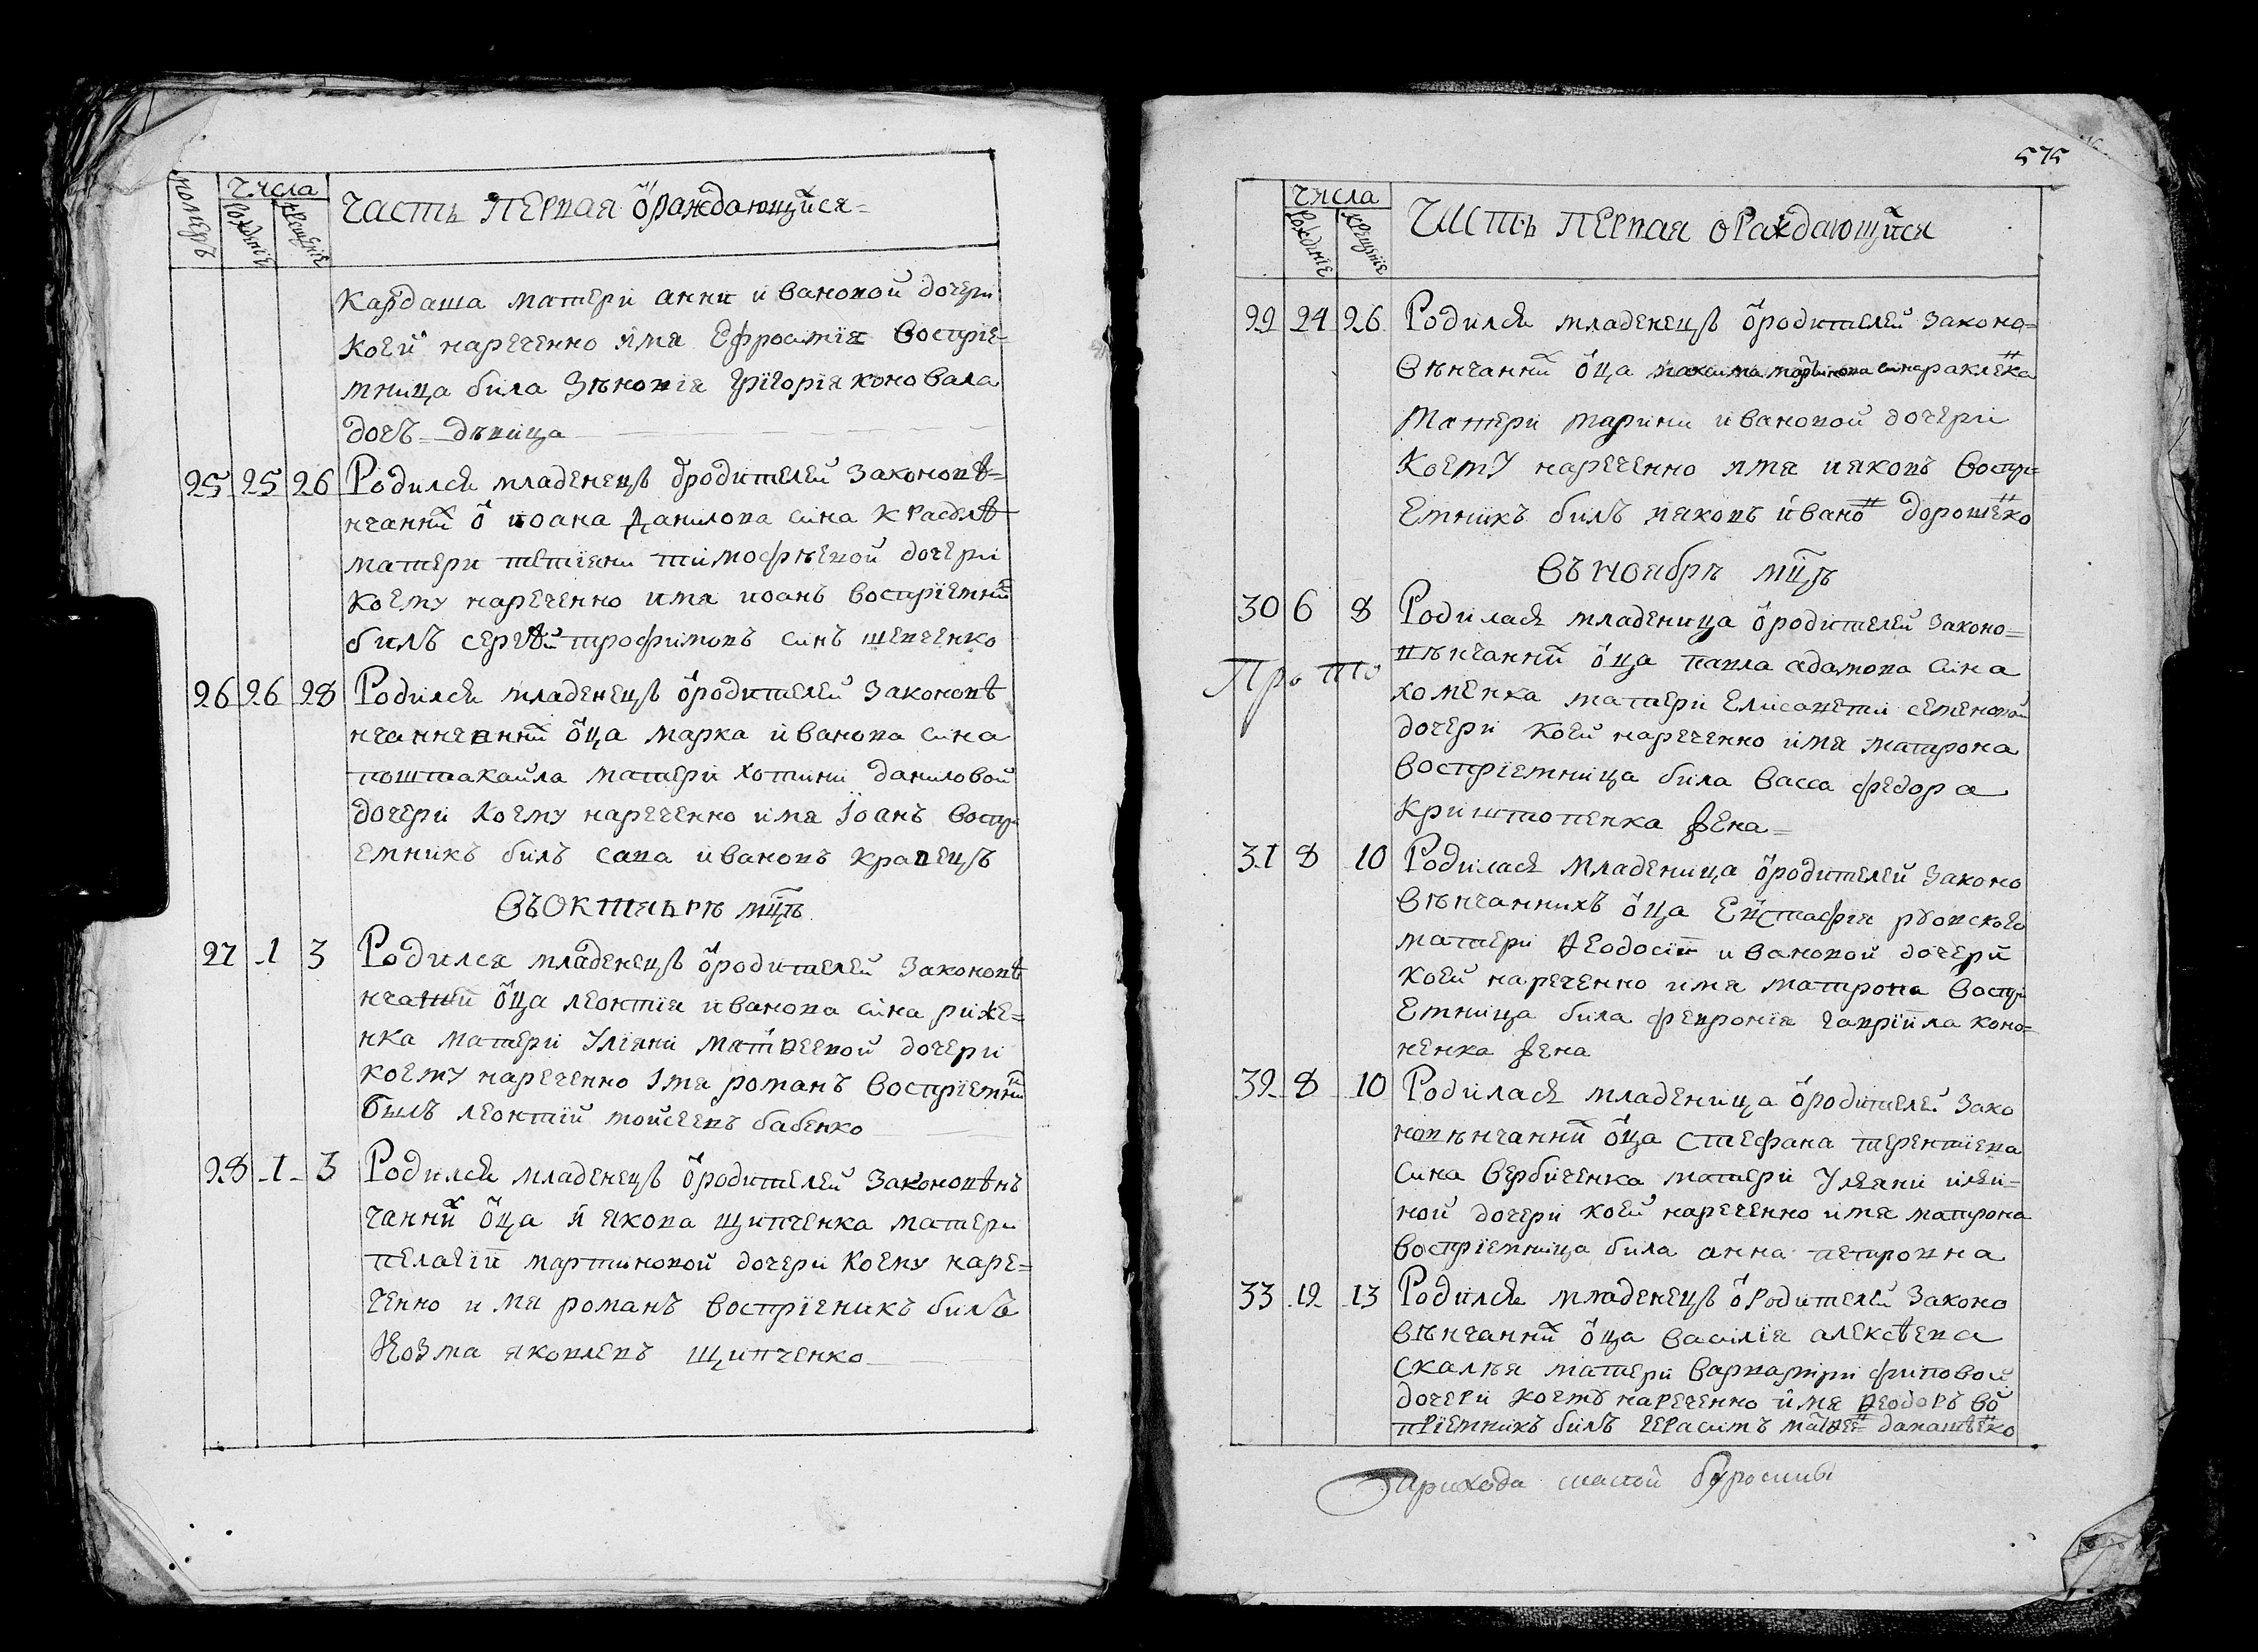 номеръ
числа
рожденїе
крещенїе
Часть первая ѽраждающихся=
Кардаша матери анни ивановой дочери
коей наречено имя Ефросинїя воспрїе-
мница била Зѣновїя Григорїя коновала
дочъ дѣвица
25 25 26 Родился младенецъ ѽродителей законовѣ-
нчанних ѽ иоана Данилова сина
матери тетїяни тимофѣевой дочери
коему нареченно имя иоанъ воспрїемник
билъ сергѣй трофимовъ синъ шевченко
26 26 28 Родился младенецъ ѽродителей законовѣ
нчанних ѽца марка иванова сина
матери хотини даниловой
дочери коему нареченно имя Іоанъ воспри
емникъ билъ сава ивановъ кравецъ
Въ октябрѣ мцѣ
27 1 3 Родился младенецъ ѽродителей законовѣ
нчаний ѽца леонтїя иванова сина риже-
нка матери Улїяни матѳеевой дочери
коему нареченно Імя романъ воспрїемник
былъ леонтїй мойсеевъ бабенко
28 1 3 Родился младенецъ ѽродителей законовѣнъ
чанних ѽца и якова щипченка матери
пелагїи мартиновой дочери коему наре-
ченно имя романъ воспрїеникъ билъ
Козма яковлевъ щипченко
575
числа
рожденїе
крещенїе
Часть первая ораждающихся
29 24 26 Родился младенецъ ѽродителей законо-
вѣнчанних ѽца максима сина
матери марини ивановой дочери
коему нареченно имя ияковъ воспри-
емникъ билъ ияковъ иванов дорошенко
Въ ноябрѣ мцѣ
30 6 8 Родилася младеница ѽродителей законо-
вѣнчанних ѽца павла адамова сина
хоменка матери Елисавети семеновой
дочери коей нареченно имя матрона
воспрїемница била васса федора
криштопенка жена=
Про то
31 8 10 Родилася младеница ѽродителей законо
вѣнчаннихъ ѽца Евстафїя
матери ѳеодосїи ивановой дочери
коей нареченно имя матрона воспри
емница била феврония гаврїила коно-
ненка жена
32 8 10 Родилася младеница ѽродителей зако
новѣнчанних ѽца стефана терентиева
сина вербиченка матери Уляни илеи-
ной дочери коей нареченно имя матрона
воспрїемница била анна петровна
33 12 13 Родился младенецъ ѽродителей законо
вѣнчанних ѽца василїя алексѣева
скалѣя матери варвари
дочери коему нареченно имя ѳеодоръ во
прїемникъ билъ герасимъ
Прихода малой буромки